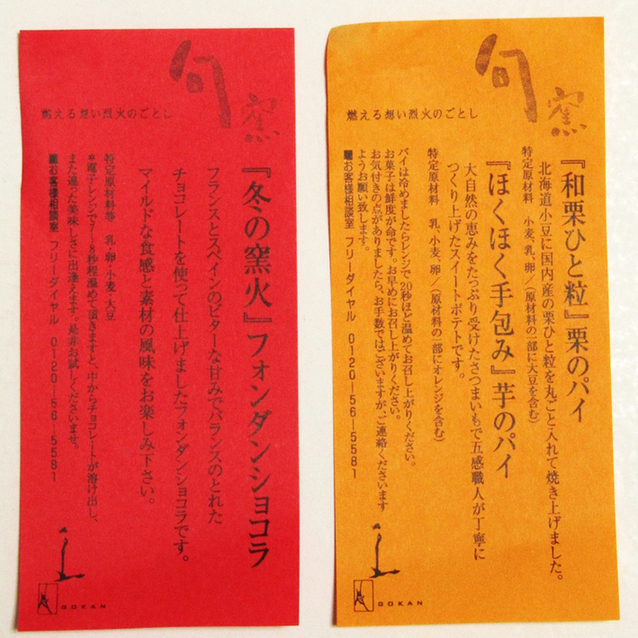 旬
窯
燃える想い烈火のごとし
『冬の窯火』フォンダンショコラ
フランスとスペインのビターな甘みでバランスのとれた
チョコレートを使って仕上げましたフォンダンショコラです。
マイルドな食感と素材の風味をお楽しみ下さい。
特定原材料等 乳・卵・小麦・大豆
*電子レンジで7~8秒程温めて頂きますと、中からチョコレートが溶け出し、
また違った美味しさに出逢えます。是非お試しくださいませ。
■お客様相談室 フリーダイヤル 0120-56-5581
GOKAN
旬
窯
燃える想い烈火のごとし
『和栗ひと粒』栗のパイ
北海道小豆に国内産の栗ひと粒を丸ごと入れて焼き上げました。
特定原材料 小麦、乳、卵/(原材料の一部に大豆を含む)
『ほくほく手包み』芋のパイ
大自然の恵みをたっぷり受けたさつまいもで五感職人が丁寧に
つくり上げたスイートポテトです。
特定原材料 乳、小麦、卵/(原材料の一部にオレンジを含む)
パイは冷めましたらレンジで20秒ほど温めてお召し上がりください。
お菓子は鮮度が命です。お早めにお召し上がりください。
お気付きの点がありましたら、お手数ではございますが、ご連絡くださいます
ようお願い致します。
■お客様相談室 フリーダイヤル 0120-56-5581
GOKAN